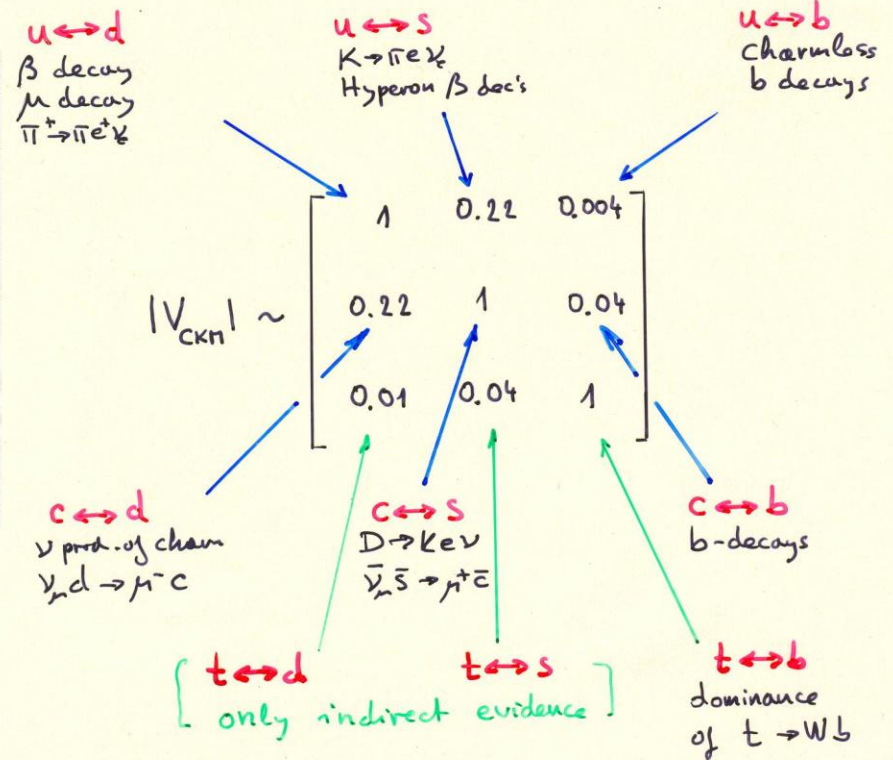 u↔d
β decay
μ decay
π⁺→πe⁺νₑ
u↔s
K→πeνₑ
Hyperon β dec's
u↔b
charmless
b decays
1 0.22 0.004
|V_CKM| ~ 0.22 1 0.04
0.01 0.04 1
c↔d
ν prod. of charm
ν_μ d → μ⁻ c
c↔s
D→Keν
ν̄_μ s̄ → μ⁺ c̄
c↔b
b-decays
t↔d t↔s
only indirect evidence
t↔b
dominance
of t → Wb